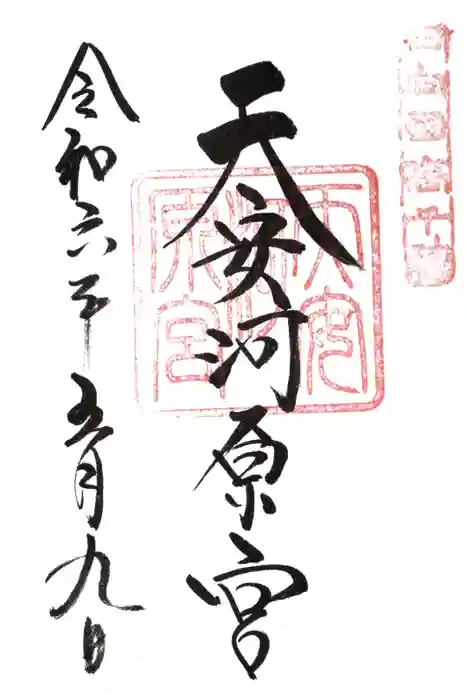 天安河原宮
令和六年五月九日